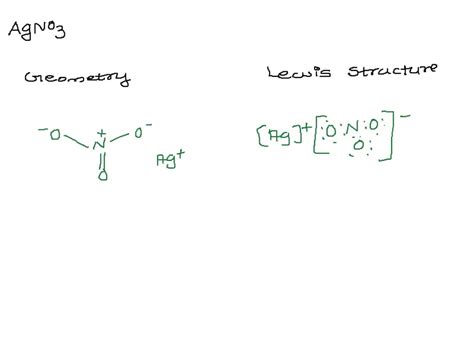 AgNO3
Geometry
Lewis Structure
⁻O N⁺ O⁻
O
Ag⁺
[Ag]⁺ [:O:N:O:]⁻
:O: